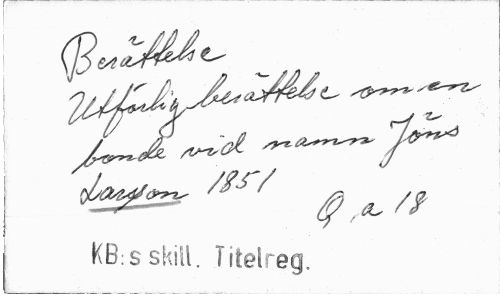 Berättelse
Utförlig berättelse om en
bonde vid namn Jöns
Larsson 1851
Q a 18
KB:s skill. Titelreg.